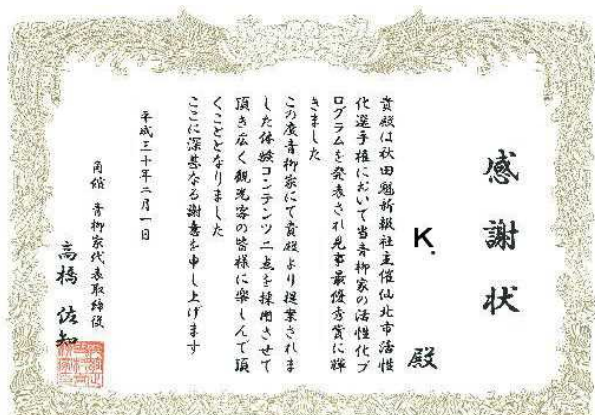 感謝状
K. 殿
貴殿は秋田魁新報社主催仙北市活性
化選手権において当青柳家の活性化プ
ログラムを発表され見事最優秀賞に輝
きました
この度青柳家にて貴殿より提案されま
した体験コンテンツ二点を採用させて
頂き広く観光客の皆様に楽しんで頂
くこととなりました
ここに深甚なる謝意を申し上げます
平成三十年二月一日
角館 青柳家代表取締役
高橋 佐知